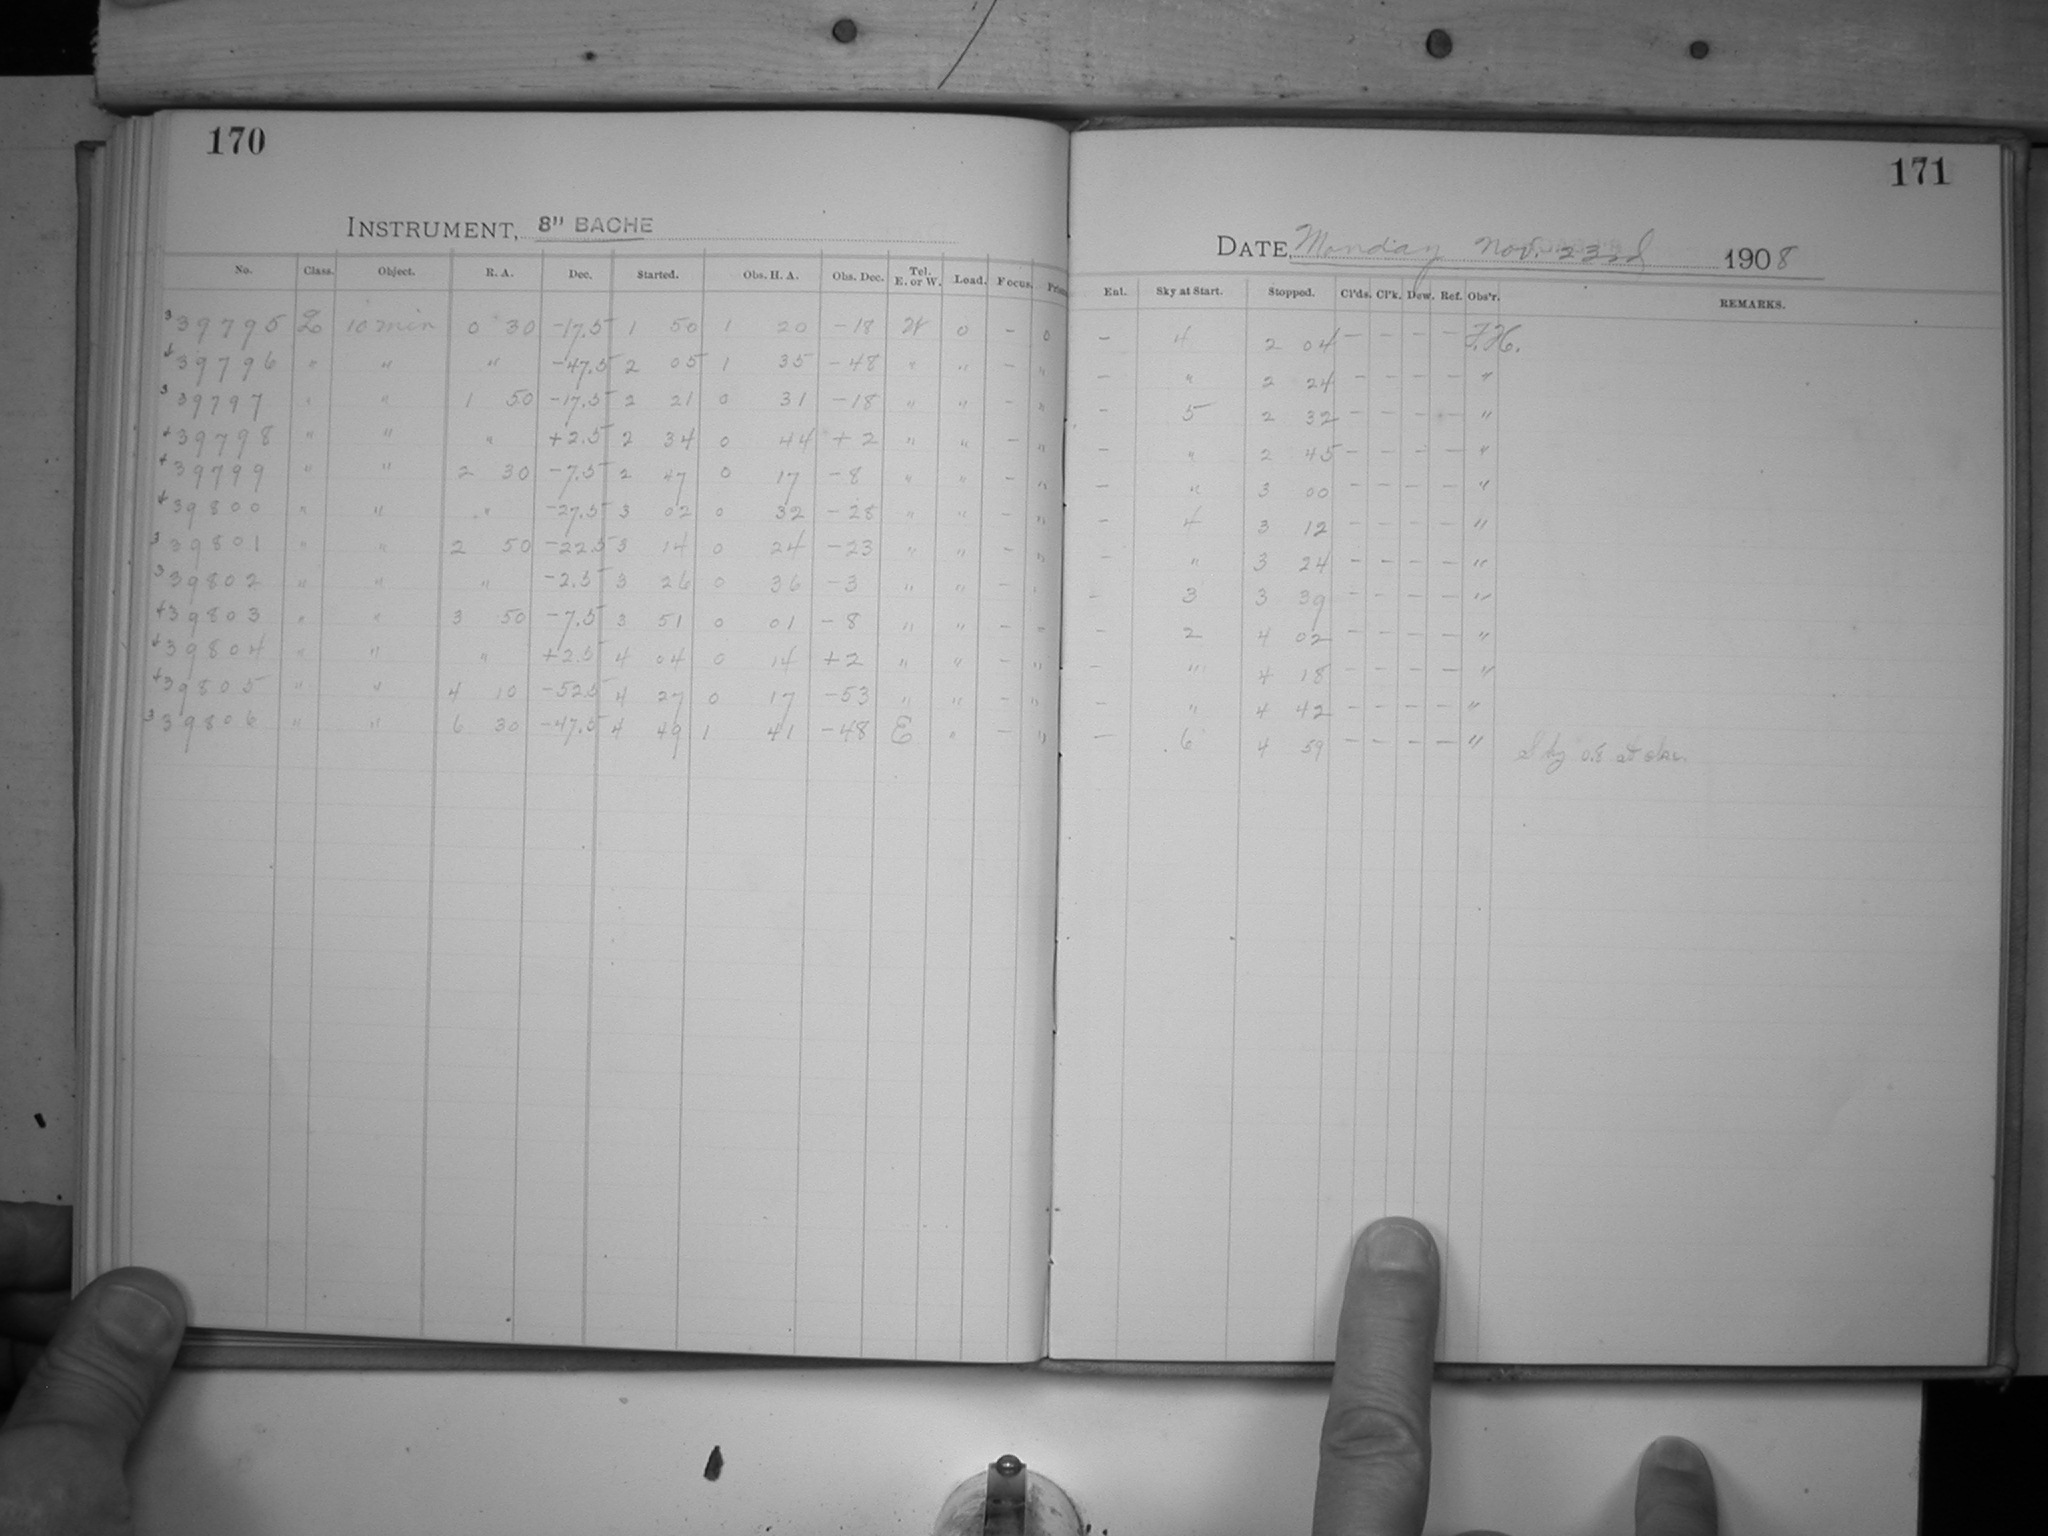 170
INSTRUMENT, 8" BACHE
No. Class. Object. R. A. Dec. Started. Obs. H. A. Obs. Dec. Tel. E. or W. Load. Focus. Prism
3 39795 L 10 min 0 30 -17.5 1 50 1 20 -18 W 0 - 0
4 39796 " " " -47.5 2 05 1 35 -48 " " - "
3 39797 " " 1 50 -17.5 2 21 0 31 -18 " " - "
4 39798 " " " +2.5 2 34 0 44 +2 " " - "
4 39799 " " 2 30 -7.5 2 47 0 17 -8 " " - "
4 39800 " " " -27.5 3 02 0 32 -28 " " - "
3 39801 " " 2 50 -22.5 3 14 0 24 -23 " " - "
3 39802 " " " -2.5 3 26 0 36 -3 " " - "
4 39803 " " 3 50 -7.5 3 51 0 01 -8 " " - "
4 39804 " " " +2.5 4 04 0 14 +2 " " - "
4 39805 " " 4 10 -52.5 4 27 0 17 -53 " " - "
3 39806 " " 6 30 -47.5 4 49 1 41 -48 E " - "
171
DATE, Monday Nov. 23rd 1908
Ent. Sky at Start. Stopped. Cl'ds. Cl'k. Dew. Ref. Obs'r. REMARKS.
- 4 2 04 - - - - F.H.
- " 2 24 - - - - "
- 5 2 32 - - - - "
- " 2 45 - - - - "
- " 3 00 - - - - "
- 4 3 12 - - - - "
- " 3 24 - - - - "
- 3 3 39 - - - - "
- 2 4 02 - - - - "
- " 4 18 - - - - "
- " 4 42 - - - - "
- 6 4 59 - - - - " Sky 0.8 at